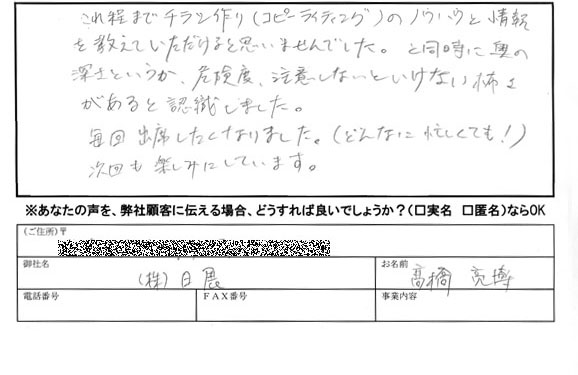 これ程までチラシ作り(コピーライティング)のノウハウと情報
を教えていただけると思いませんでした。と同時に奥の
深さというか、危険度、注意しないといけない怖さ
があると認識しました。
毎回出席したくなりました。(どんなに忙しくても!)
次回も楽しみにしています。
※あなたの声を、弊社顧客に伝える場合、どうすれば良いでしょうか?(□実名 □匿名)ならOK
(ご住所)〒
御社名 お名前
(株)日展 髙橋 亮
電話番号 FAX番号 事業内容